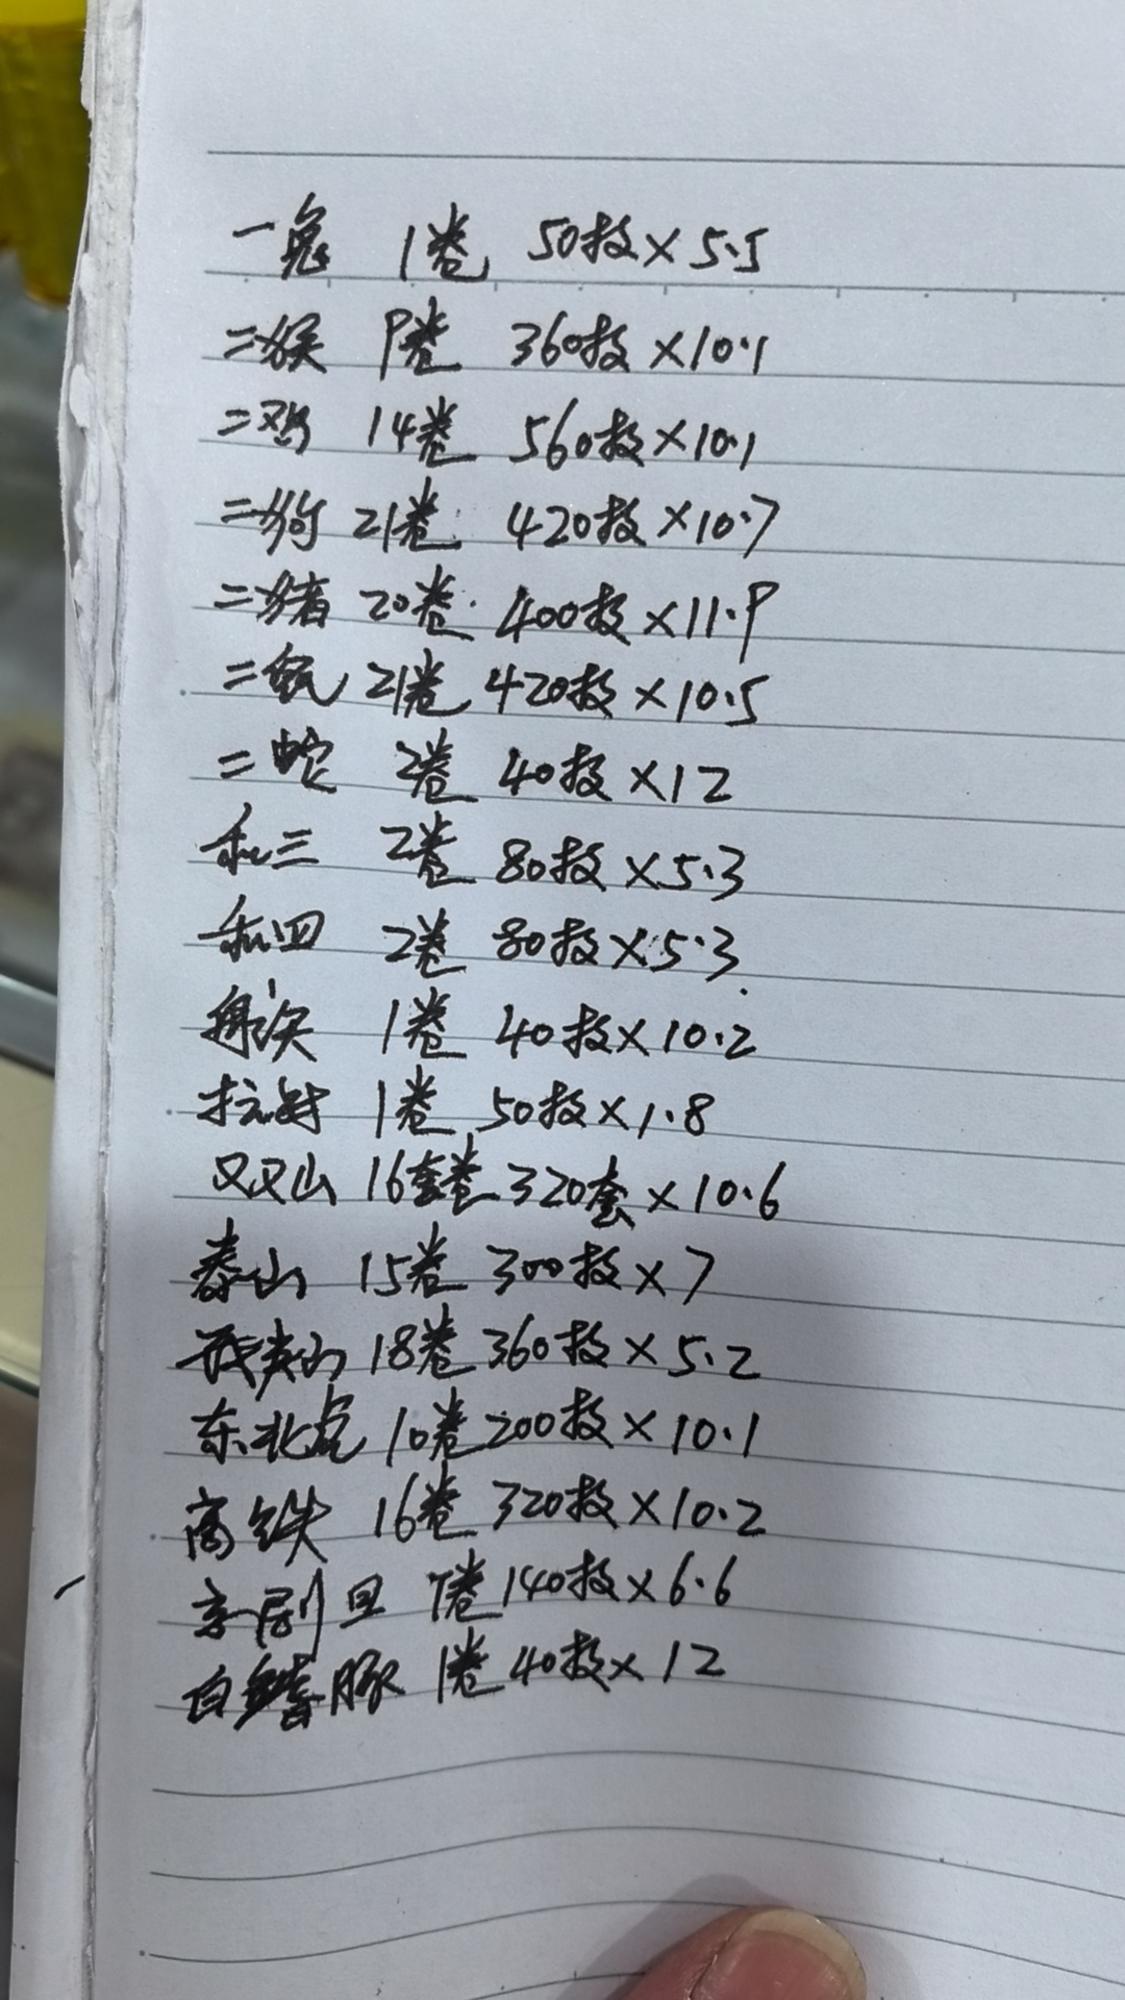 一兔 1卷 50枚×5.5
二猴 9卷 360枚×10.1
二鸡 14卷 560枚×10.1
二狗 21卷 420枚×10.7
二猪 20卷 400枚×11.9
二龙 21卷 420枚×10.5
二蛇 2卷 40枚×12
和三 2卷 80枚×5.3
和四 2卷 80枚×5.3
1卷 40枚×10.2
抗战 1卷 50枚×1.8
双山 16套卷 320套×10.6
泰山 15卷 300枚×7
武夷山 18卷 360枚×5.2
东北虎 10卷 200枚×10.1
高铁 16卷 320枚×10.2
京剧旦 7卷 140枚×6.6
白鳍豚 1卷 40枚×12